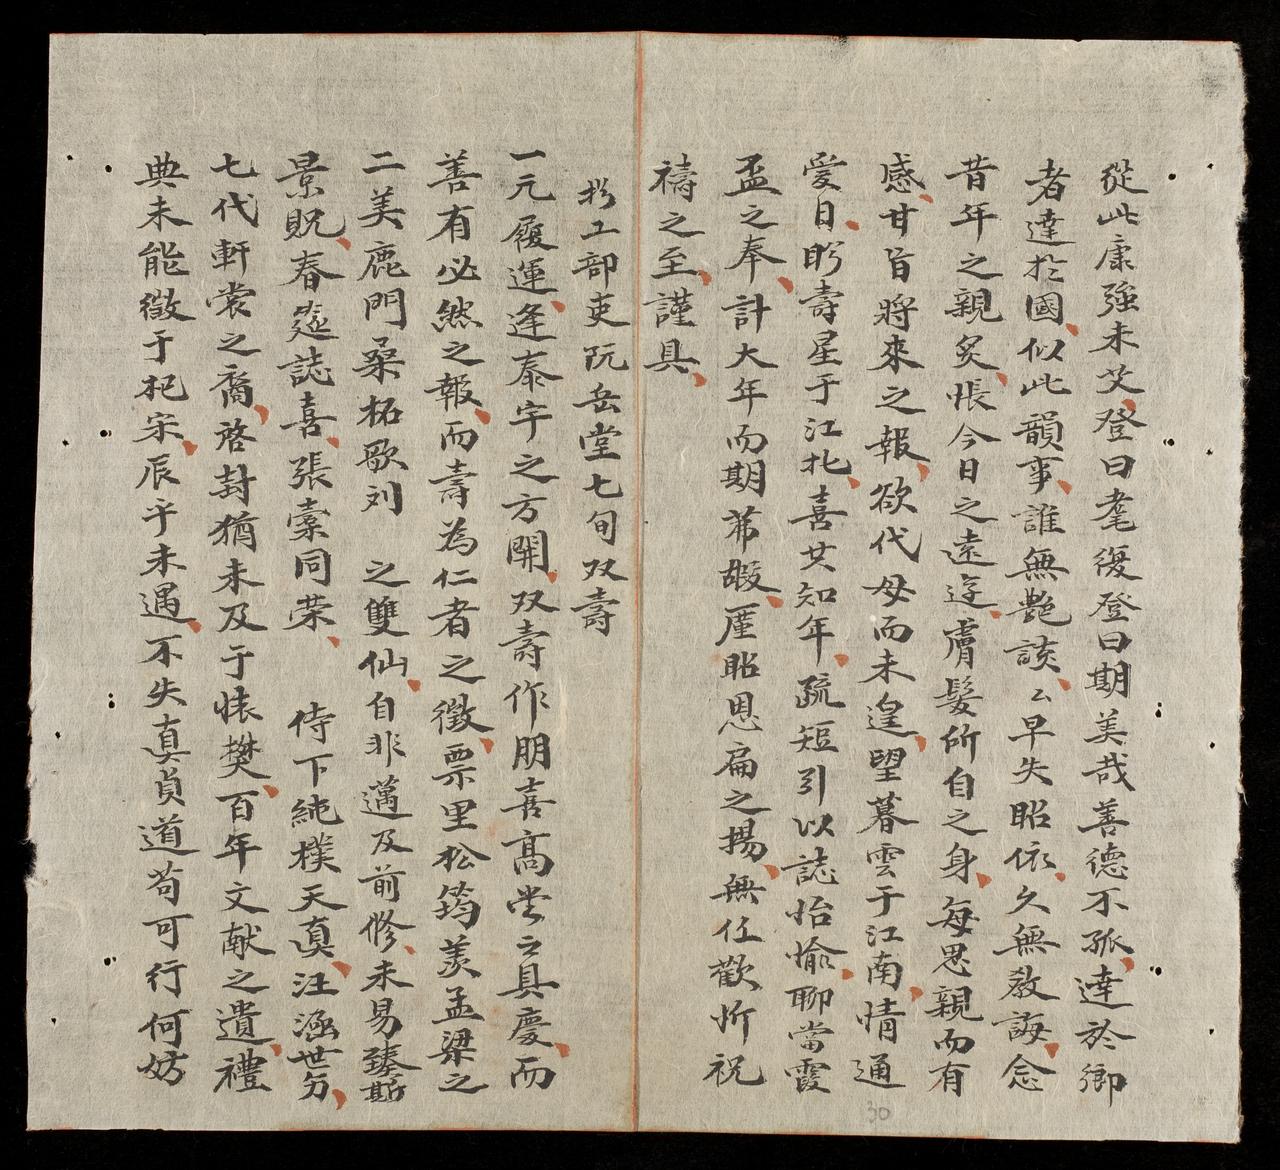 從此康強未艾登曰耄復登曰期美哉善德不孤達於鄉
者達於國似此韻事誰無艷談厶早失昭依久無教誨念
昔年之親炙悵今日之遠迳膚髮所自之身每思親而有
感甘旨將來之報欲代母而未遑望暮雲于江南情通
愛日盻壽星于江北喜共知年疏短引以誌怡愉聊當霞
盃之奉計大年而期茀嘏厪昭恩扁之揚無任歡忻祝
禱之至謹具
杉工部吏阮岳堂七旬双壽
一元履運逢泰宇之方開双壽作朋喜高堂之具慶而
善有必然之報而壽為仁者之徵票里松筠羡孟梁之
二美鹿門桑柘歌刘之雙仙自非邁及前修未易臻斯
景貺春筵誌喜張棠同荣侍下純樸天真汪涵世匇
七代軒裳之裔啓封猶未及于怢樊百年文献之遺禮
典未能徵于杞宋辰乎未遇不失真貞道苟可行何妨